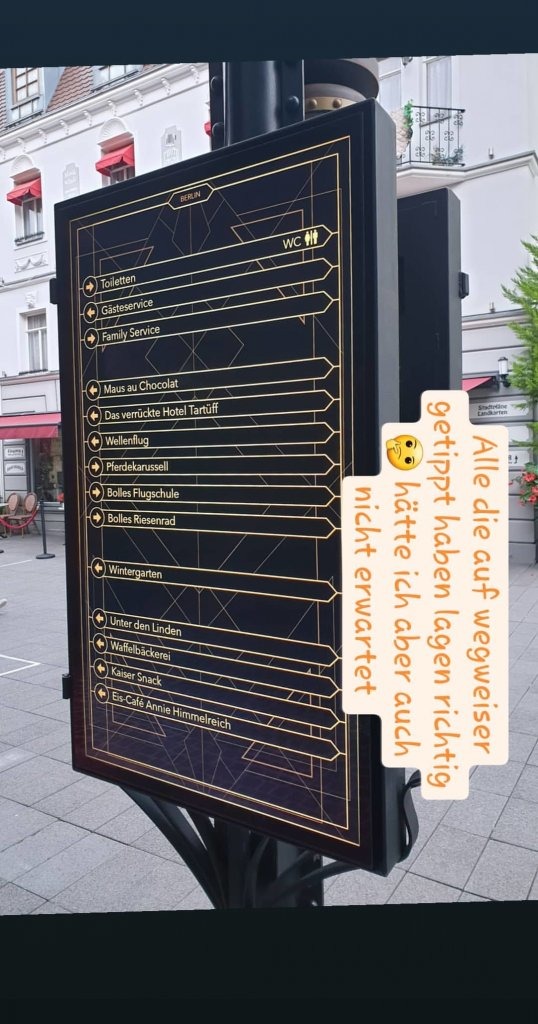 BERLIN
WC
Toiletten
Gästeservice
Family Service
Maus au Chocolat
Das verrückte Hotel Tartüff
Wellenflug
Pferdekarussell
Bolles Flugschule
Bolles Riesenrad
Wintergarten
Unter den Linden
Waffelbäckerei
Kaiser Snack
Eis-Café Annie Himmelreich
Stadtpläne
Landkarten
Alle die auf wegweiser
getippt haben lagen richtig
🤔 hätte ich aber auch
nicht erwartet